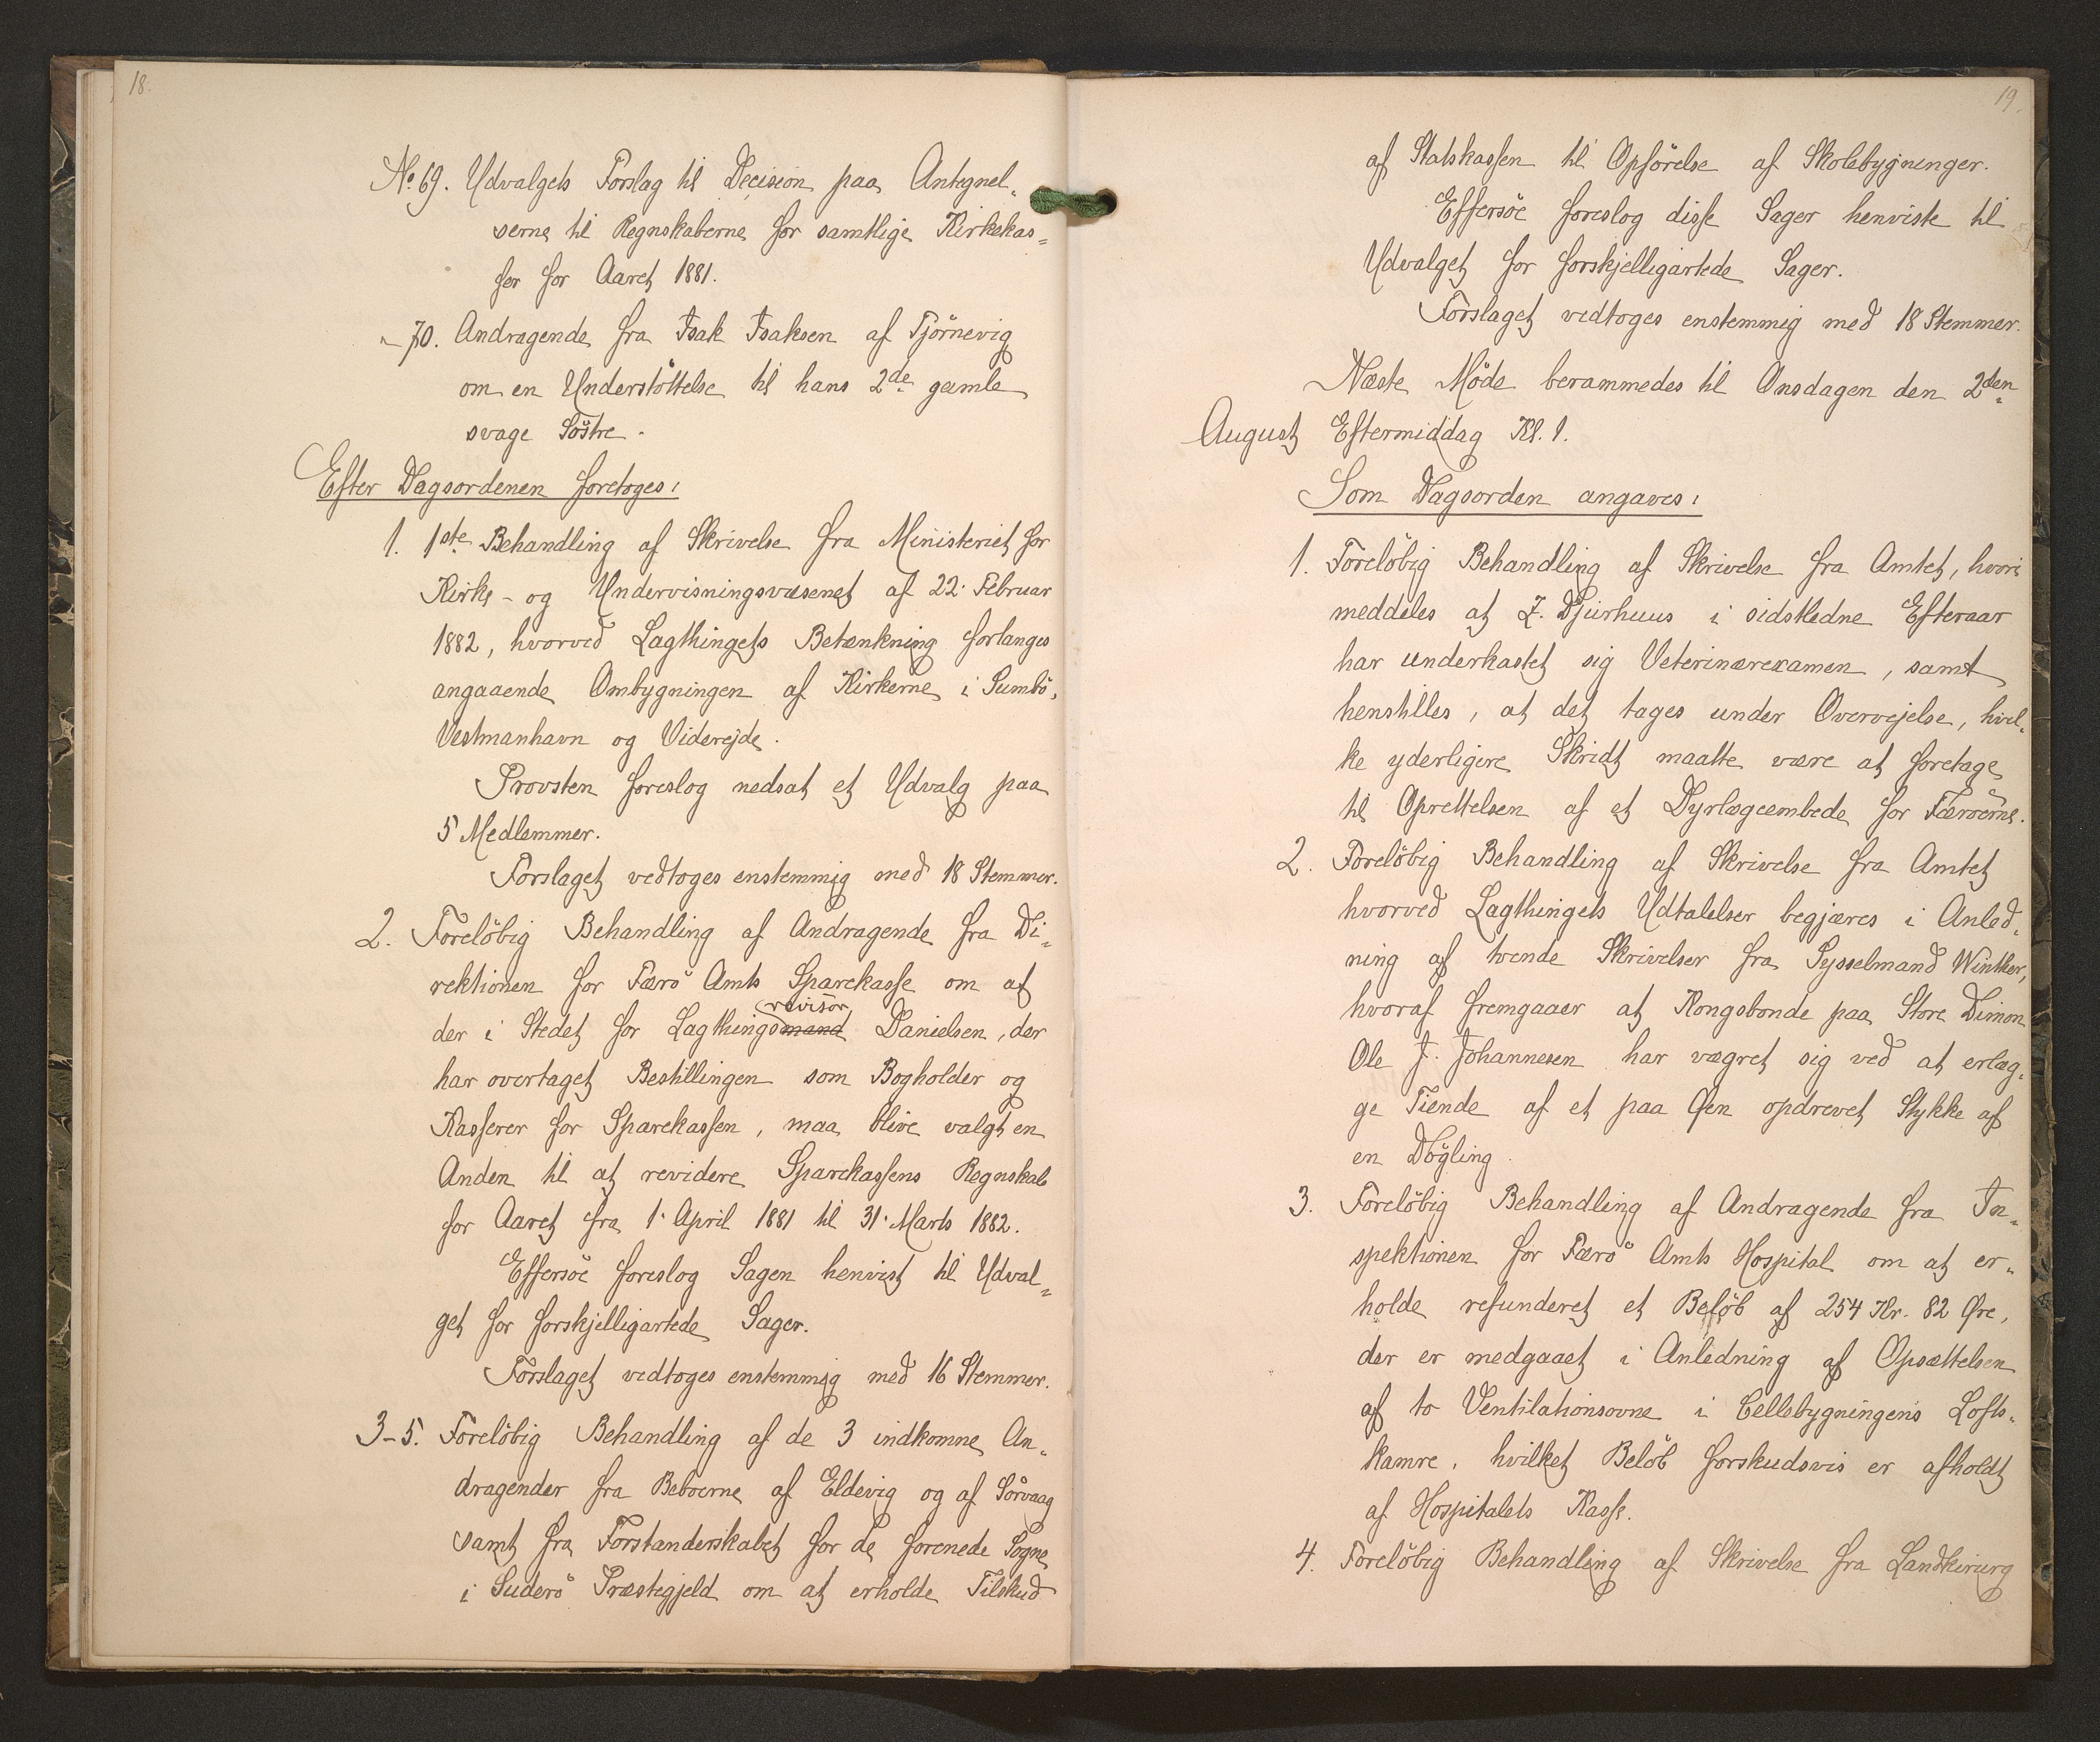 18.
No. 69. Udvalgets Forslag til Decision paa Antegnel-
serne til Regnskaberne for samtlige Kirkekas-
ser for Aaret 1881.
„ 70. Andragende fra Isak Isaksen af Tjörnevig
om en Understöttelse til hans 2de gamle
svage Söstre.
Efter Dagsordenen foretoges:
1. 1ste Behandling af Skrivelse fra Ministeriet for
Kirke- og Undervisningsvæsenet af 22. Februar
1882, hvorved Lagthingets Betænkning forlanges
angaaende Ombygningen af Kirkerne i Sumbö,
Vestmanhavn og Viderejde.
Provsten foreslog nedsat et Udvalg paa
5 Medlemmer.
Forslaget vedtoges enstemmig med 18 Stemmer.
2. Forelöbig Behandling af Andragende fra Di-
rektionen for Færö Amts Sparekasse om at
revisor
der i Stedet for Lagthingsmand Danielsen, der
har overtaget Bestillingen som Bogholder og
Kasserer for Sparekassen, maa blive valgt en
Anden til at revidere Sparekassens Regnskab
for Aaret fra 1. April 1881 til 31. Marts 1882.
Effersöe foreslog Sagen henvist til Udval-
get for forskjelligartede Sager.
Forslaget vedtoges enstemmig med 16 Stemmer.
3-5. Forelöbig Behandling af de 3 indkomne An-
dragender fra Beboerne af Eldevig og af Sörvaag
samt fra Forstanderskabet for de forenede Sogne
i Suderö Præstegjeld om at erholde Tilskud
19.
af Statskassen til Opförelse af Skolebygninger.
Effersöe foreslog disse Sager henviste til
Udvalget for forskjelligartede Sager.
Forslaget vedtoges enstemmig med 18 Stemmer.
Næste Möde berammedes til Onsdagen den 2den
August Eftermiddag Kl. 1.
Som Dagsorden angaves:
1. Forelöbig Behandling af Skrivelse fra Amtet, hvori
meddeles at Z. Djurhuus i sidstledne Efteraar
har underkastet sig Veterinærexamen, samt
henstilles, at det tages under Overvejelse, hvil-
ke yderligere Skridt maatte være at foretage
til Oprettelsen af et Dyrlægeembede for Færöerne.
2. Forelöbig Behandling af Skrivelse fra Amtet
hvorved Lagthingets Udtalelser begjæres i Anled-
ning af tvende Skrivelser fra Sysselmand Winther,
hvoraf fremgaaer at Kongsbonde paa Store Dimon
Ole J. Johannesen har vægret sig ved at erlæg-
ge Tiende af et paa Øen opdrevet Stykke af
en Dögling.
3. Forelöbig Behandling af Andragende fra In-
spektionen for Færö Amts Hospital om at er-
holde refunderet et Belöb af 254 Kr. 82 Øre,
der er medgaaet i Anledning af Opsættelsen
af to Ventilationsovne i Cellebygningens Lofts-
kamre, hvilket Belöb forskudsvis er afholdt
af Hospitalets Kasse.
4. Forelöbig Behandling af Skrivelse fra Landkirurg